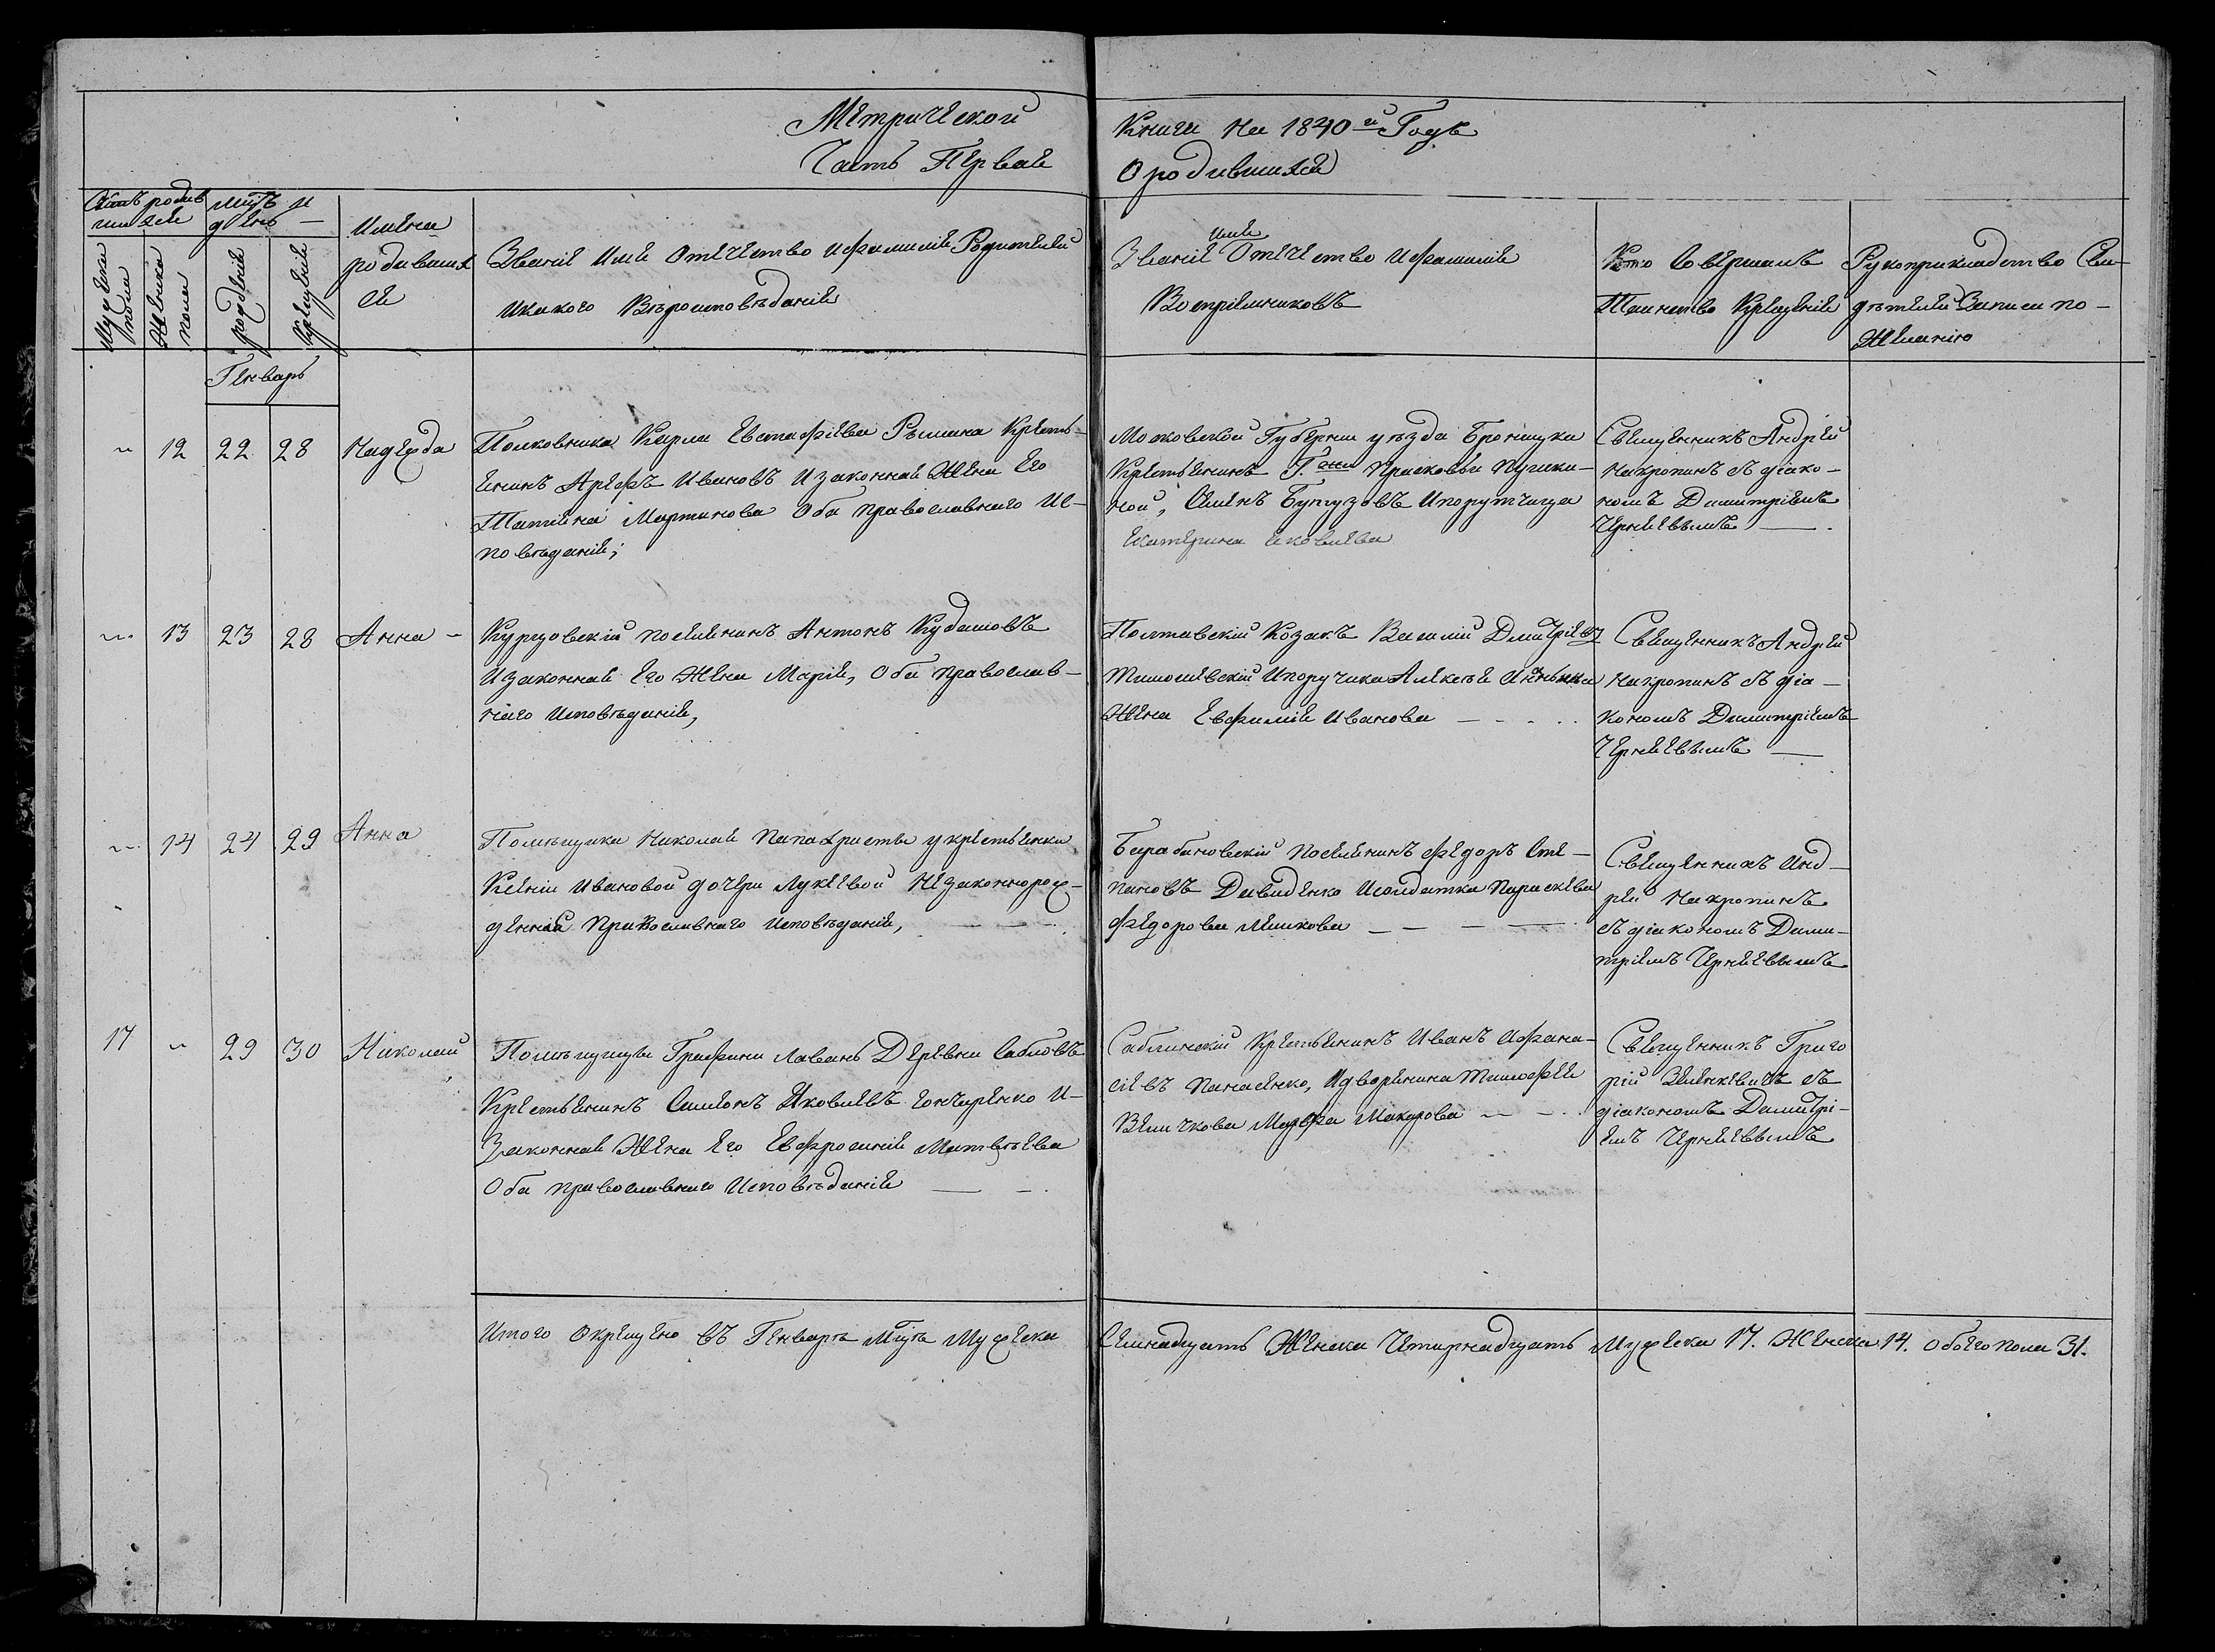 Метрической
Часть Первая
Книги на 1840й Годъ
О родившихся
Счетъ родив
шихся
мцъ и
день
Мужеска
пола
Женска
пола
рожденія
Крещенія
Имена
родивших
ся
Званіе Имя Отечество и Фамилія Родителей
и какого Вѣроисповѣданія
Званіе имя Отечество и Фамилія
Воспріемниковъ
Кто Совершалъ
Таинство Крещенія
Рукоприкладство Сви-
дѣтелей Записи по-
Желанію
Генварь
12 22 28 Надежда
Полковника Карла Евстафіева Рыпина Кресть-
янинъ Арефъ Ивановъ и законная Жена Его
Татіяна Мартинова Оба православнаго Ис-
повѣданія;
Московской Губерніи уѣзда Броницка
Крестьянинъ Гжи Прасковьи Пушки-
ной, Семенъ Бунгузовъ и порутчица
Екатерина Яковлева
Священникъ Андрей
Накропинъ съ діако-
номъ Димитріемъ
Чернявевымъ
13 23 28 Анна
Курцовскій поселянинъ Антонъ Кудашовъ
и законная его Жена Марія, Оба православ-
наго Исповѣданія,
Полтавскій Козакъ Василій Дмитріевъ
Тимошевскій и поручика Алексея
Жена Евфимія Иванова
Священникъ Андрей
Накропинъ съ діа-
кономъ Димитріемъ
Чернявевымъ
14 24 29 Анна
Помѣщика Николая Папахристы у крестьянки
Ксеніи Ивановой дочери Лукевой Незаконнорож-
денная Православнаго Исповѣданія,
Барабановскій поселянинъ Федоръ Сте-
пановъ Давиденко и солдатка Параскева
Федорова Машкова
Священникъ Анд-
рей Накропинъ
съ діакономъ Дими-
тріемъ Чернявевымъ
17 29 30 Николай
Помѣщицы Графини Лаваль Деревни Сабловъ
Крестьянинъ Симеонъ Яковлевъ Гончаренко и-
Законная Жена Его Евфросинія Матвѣева
Оба православнаго Исповѣданія
Саблинскій Крестьянинъ Иванъ Афана-
сіевъ Панасенко, и дворянина Тимофея
Величкова Марфа Макарова
Священникъ Григо
рій Зеленкевичъ съ
діакономъ Димитрі-
емъ Чернявевымъ
Итого Окрещено въ Генварѣ Мцѣ Мужеска Семнадцать Женска Четырнадцать Мужеска 17. Женска 14. Обоего пола 31.